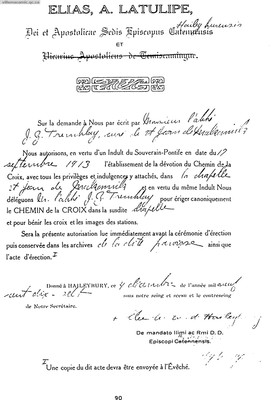 ELIAS, A. LATULIPE,
Dei et Apostolicæ Sedis Episcopus Catennensis
Haileyburensis
ET
Vicarius Apostolicus de Temiscamingue.
Sur la demande à Nous par écrit par Monsieur l'abbé
J. G. Tremblay, curé de St Jean de
Nous autorisons, en vertu d'un Indult du Souverain-Pontife en date du 17
septembre 1913 l'établissement de la dévotion du Chemin de la
Croix, avec tous les privilèges et indulgences y attachés, dans la chapelle
St Jean de en vertu du même Indult Nous
déléguons l'abbé J. G. Tremblay pour ériger canoniquement
le CHEMIN de la CROIX dans la susdite chapelle
et pour bénir les croix et les images des stations.
Sera la présente autorisation lue immédiatement avant la cérémonie d'érection
puis conservée dans les archives de la dite paroisse ainsi que
l'acte d'érection.
Donné à HAILEYBURY, ce 4 décembre de l'année mil neuf
cent dix-sept sous notre seing et sceau et le contreseing
de Notre Secrétaire.
De mandato Illmi ac Rmi D. D.
Episcopi Catennensis.
Une copie du dit acte devra être envoyée à l'Évêché.
90